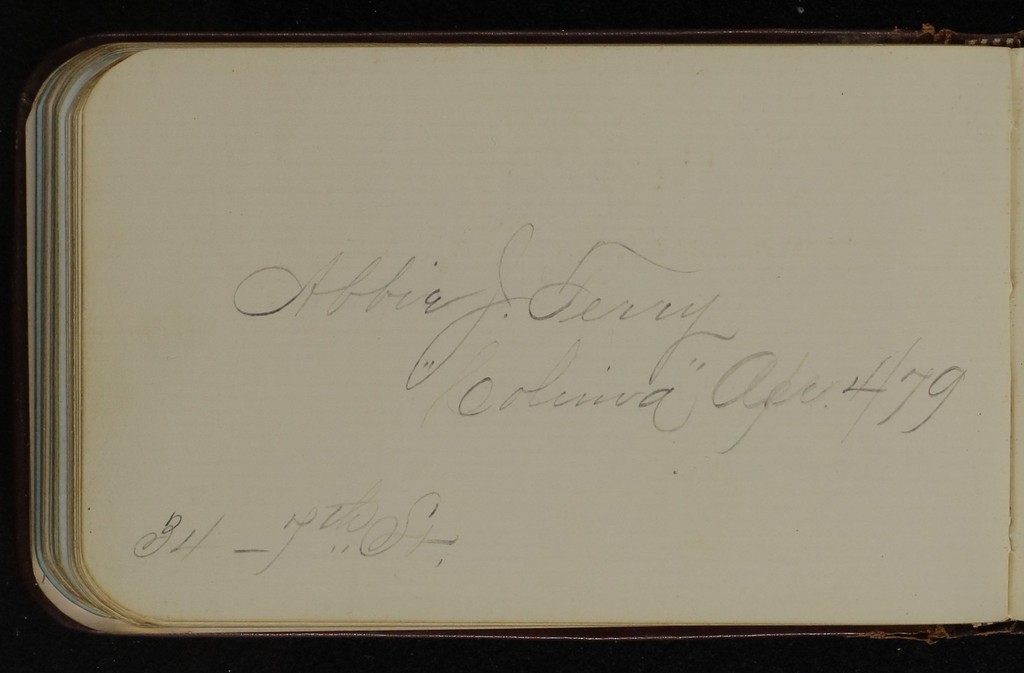 Abbie J. Terry
"Colima" Apr. 4/79
34 - 7th St.